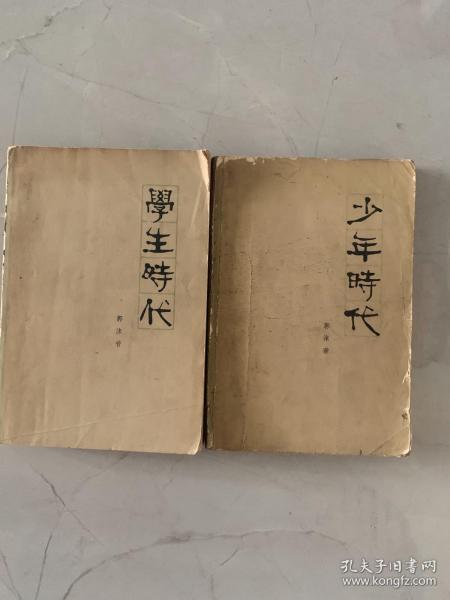 學生時代
郭沫若
少年時代
郭沫若
孔夫子旧书网
www.kongfz.com